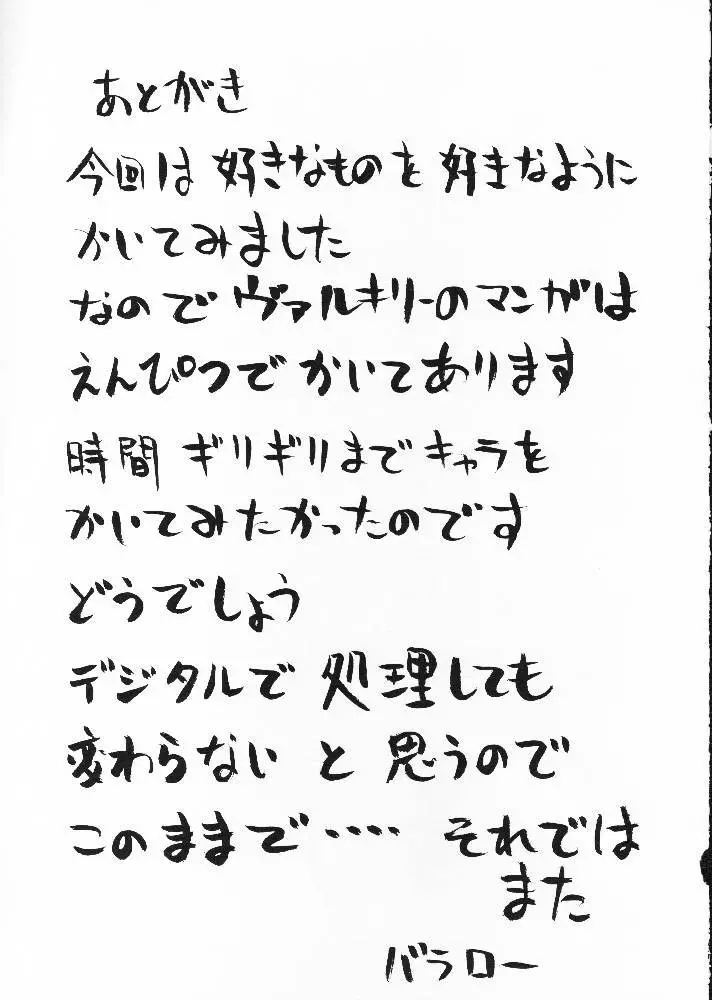 あとがき
今回は 好きなものを 好きなように
かいてみました
なので ヴァルキリーのマンガは
えんぴつでかいてあります
時間 ギリギリまでキャラを
かいてみたかったのです
どうでしょう
デジタルで 処理しても
変わらない と 思うので
このままで‥‥ それでは
また
バラロー